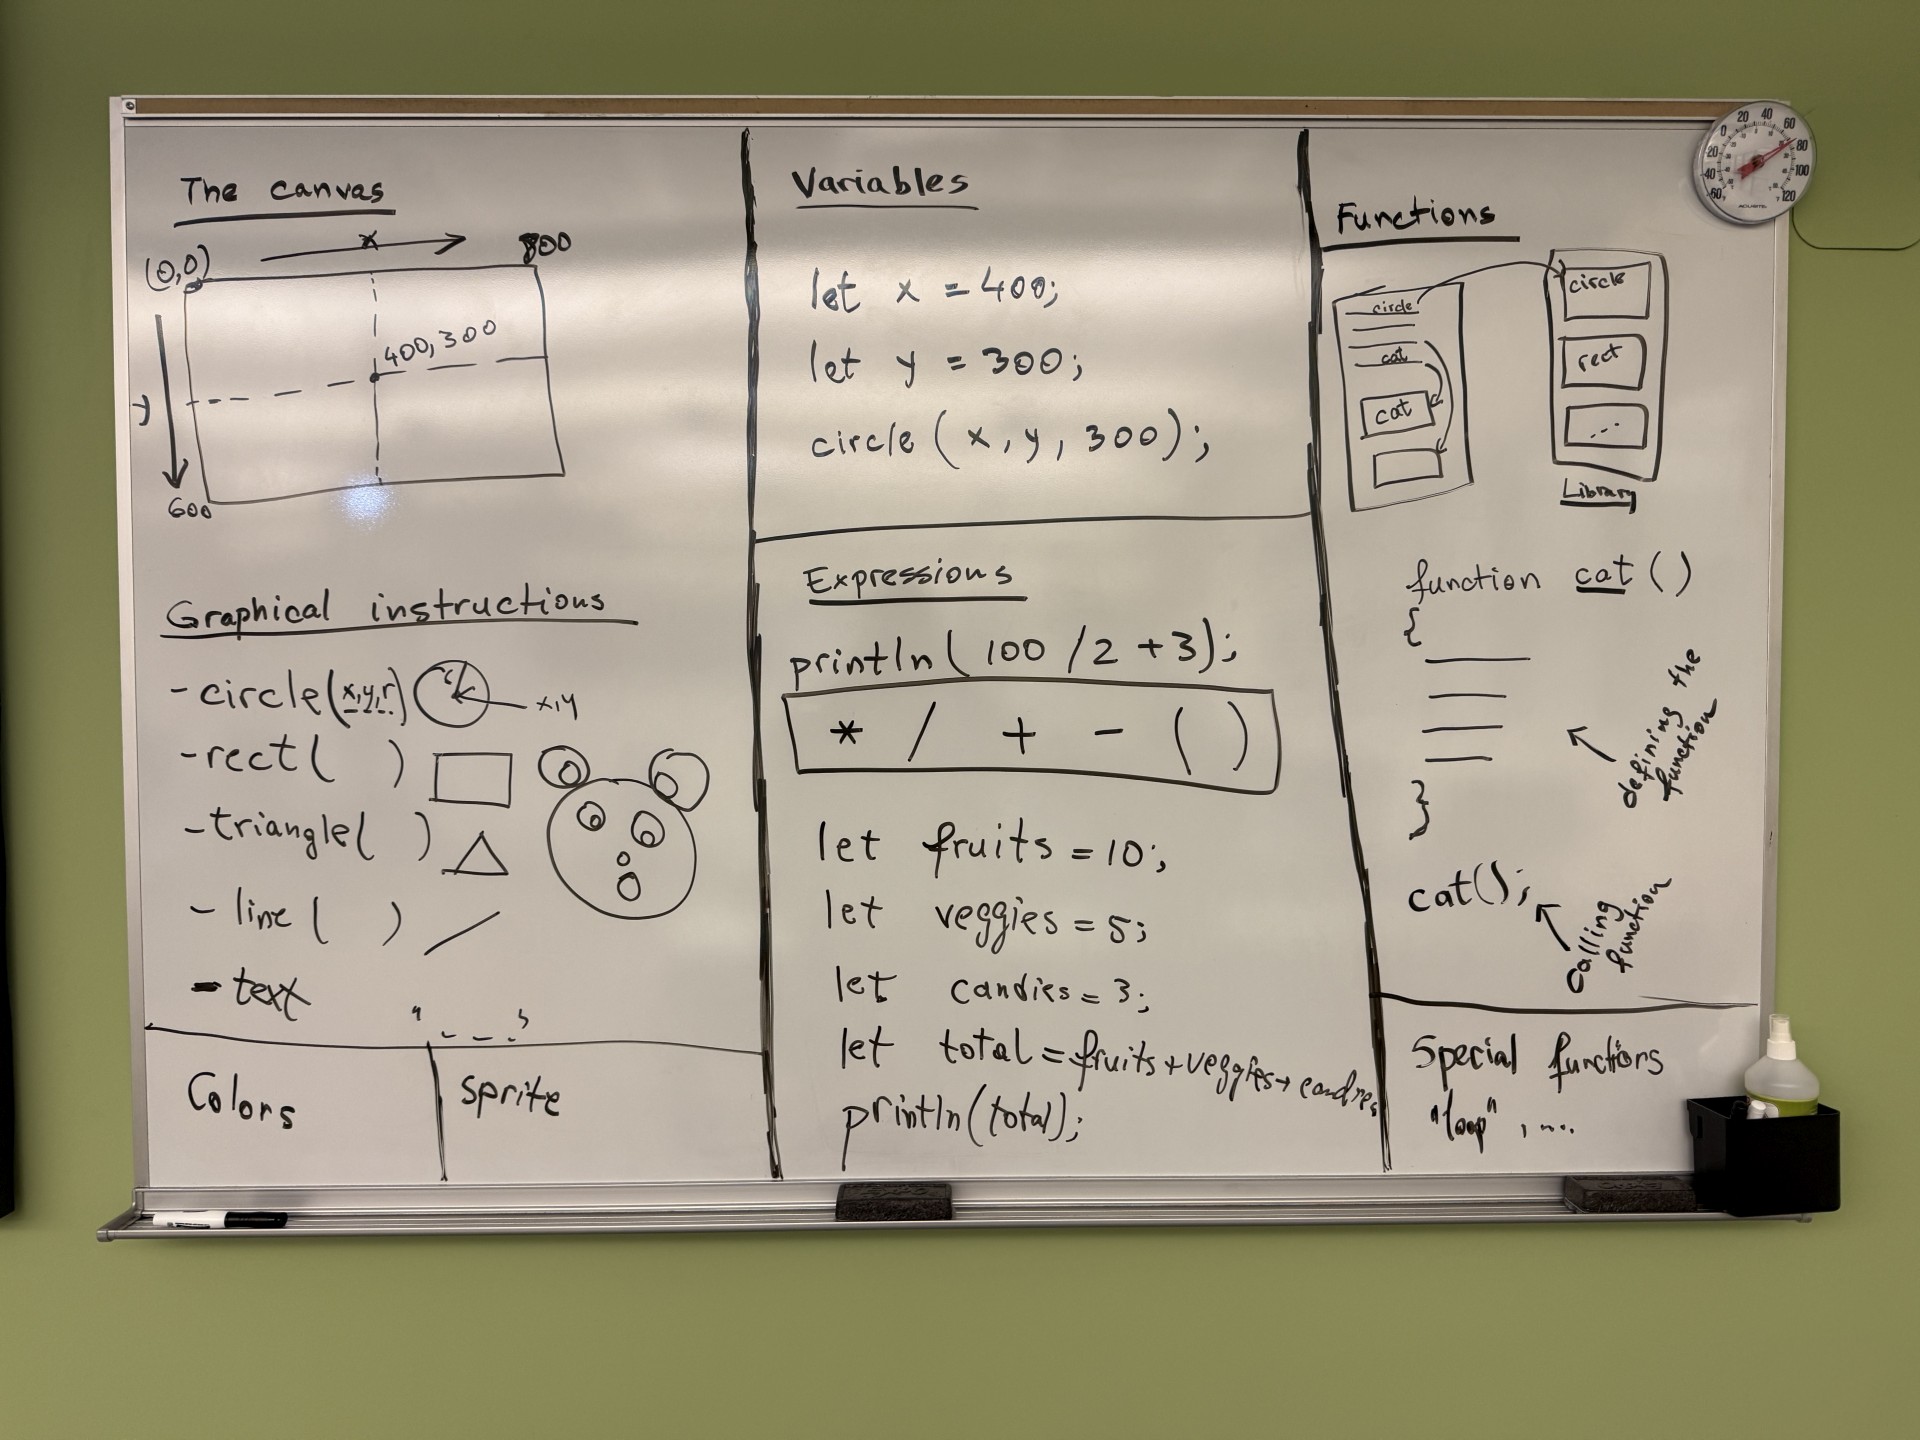 The canvas
x
800
(0,0)
400, 300
y
600
Graphical instructions
- circle(x,y,r)
r
x,y
- rect( )
- triangle( )
- line ( )
- text
Colors
sprite
Variables
let x = 400;
let y = 300;
circle ( x, y, 300);
Expressions
println( 100 /2 +3);
* / + - ( )
let fruits = 10;
let veggies = 5;
let candies = 3;
let total = fruits + veggies + candies
println(total);
Functions
circle
cat
cat
circle
rect
...
Library
function cat ( )
{
defining the
function
}
cat();
calling
function
Special functions
"loop", ....
20 40 60 80 100 120
0
20
40
60
ACURITE